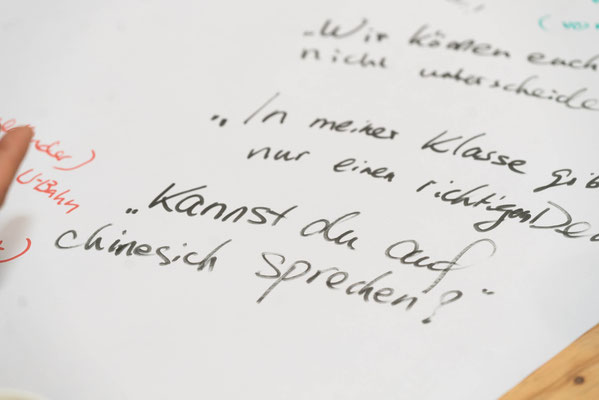 „Wir können euch
nicht unterscheide
„In meiner Klasse gib
nur einen richtigen De
U-Bahn
„Kannst du auf
chinesich sprechen?“